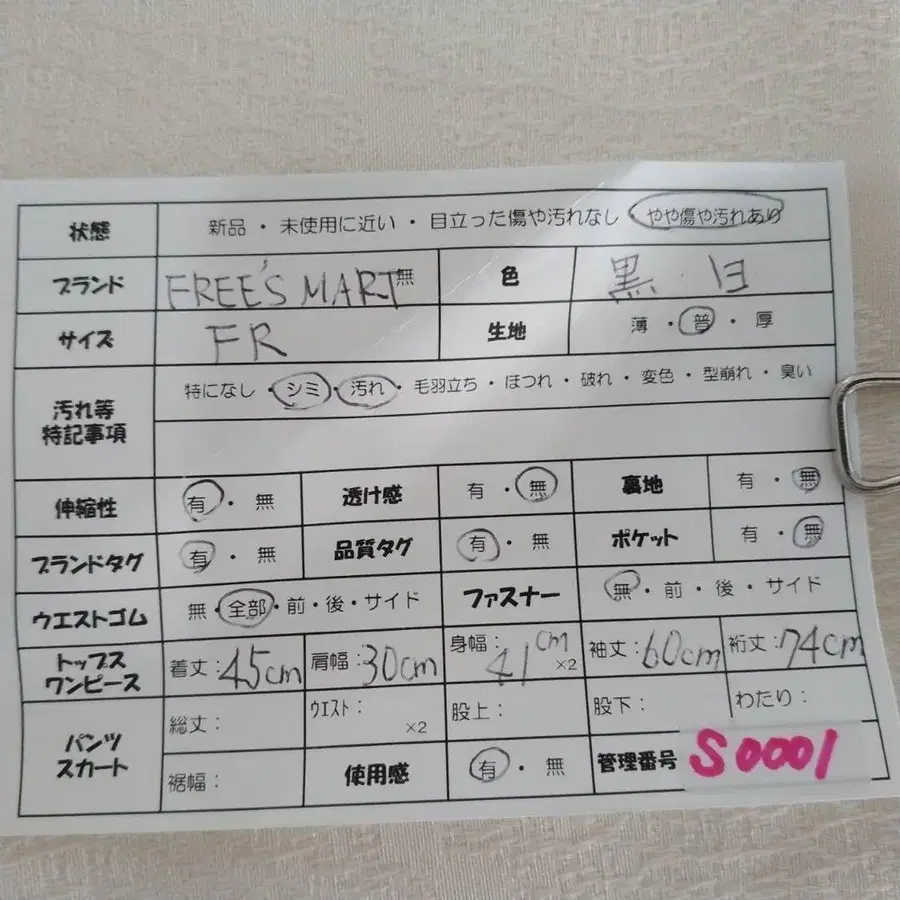 状態 新品 ・ 未使用に近い ・ 目立った傷や汚れなし ・ やや傷や汚れあり
ブランド FREE'S MART 無 色 黒 白
サイズ FR 生地 薄 ・ 普 ・ 厚
汚れ等特記事項 特になし ・ シミ ・ 汚れ ・ 毛羽立ち ・ ほつれ ・ 破れ ・ 変色 ・ 型崩れ ・ 臭い
伸縮性 有 ・ 無 透け感 有 ・ 無 裏地 有 ・ 無
ブランドタグ 有 ・ 無 品質タグ 有 ・ 無 ポケット 有 ・ 無
ウエストゴム 無 ・ 全部 ・ 前 ・ 後 ・ サイド ファスナー 無 ・ 前 ・ 後 ・ サイド
トップス ワンピース 着丈：45cm 肩幅：30cm 身幅：41cm ×2 袖丈：60cm 裄丈：74cm
パンツ スカート 総丈： ウエスト： ×2 股上： 股下： わたり：
裾幅： 使用感 有 ・ 無 管理番号 S0001